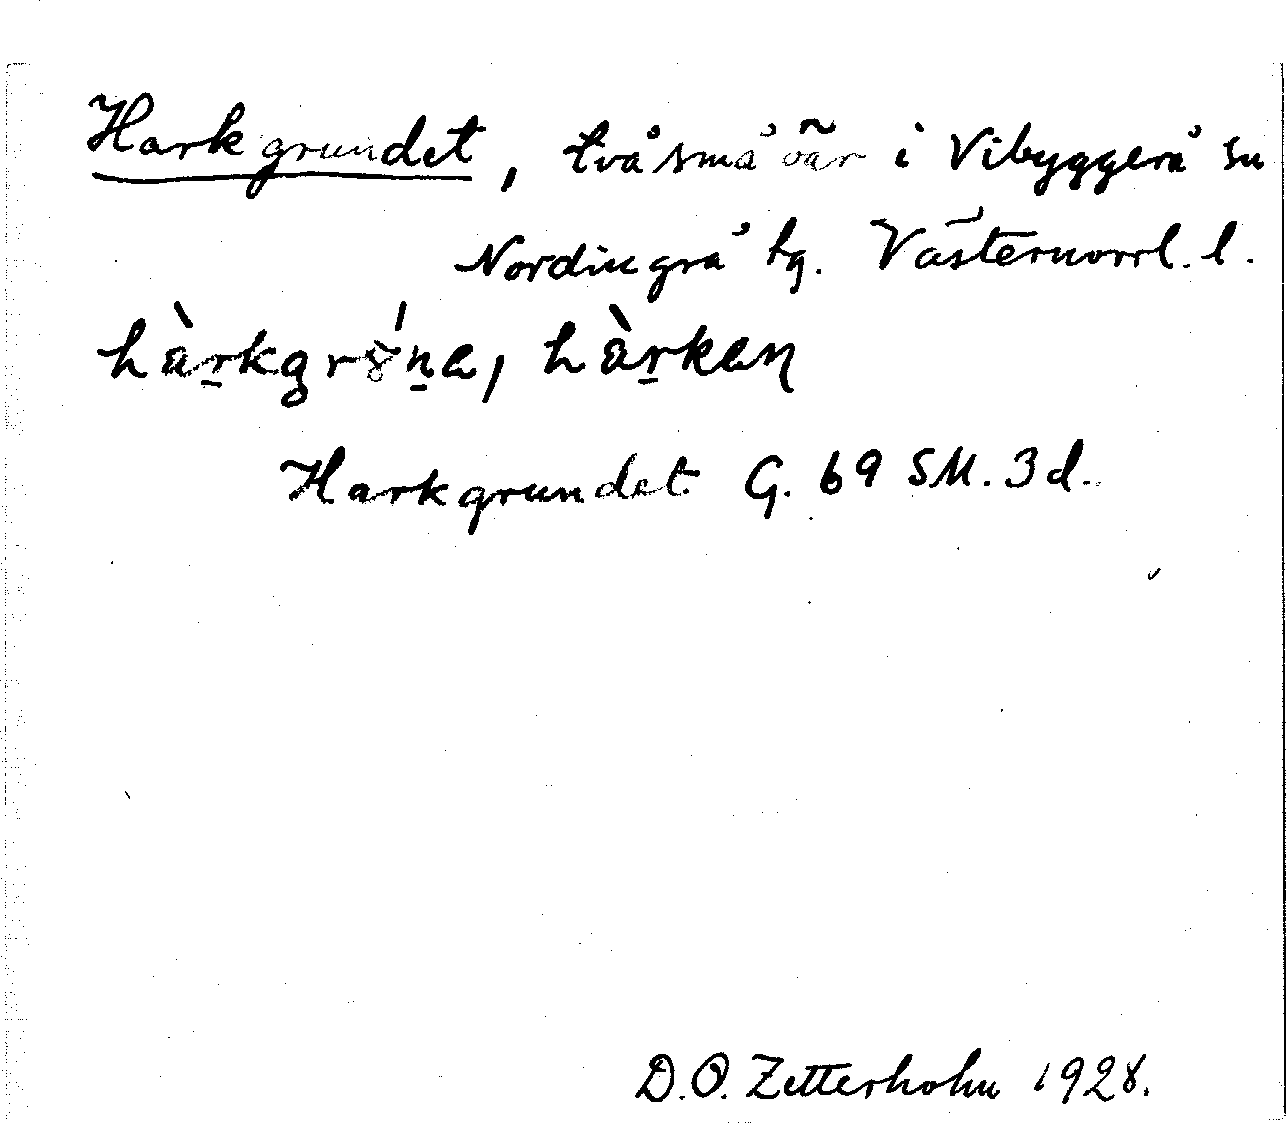 Harkgrundet, två små öar i Vibyggerå sn
Nordingrå tg. Västernorrl. l.
hàrkgrɤ́ṉa, hàrkan
Harkgrundet G. 69 SM. 3 d.
D.O. Zetterholm 1928.